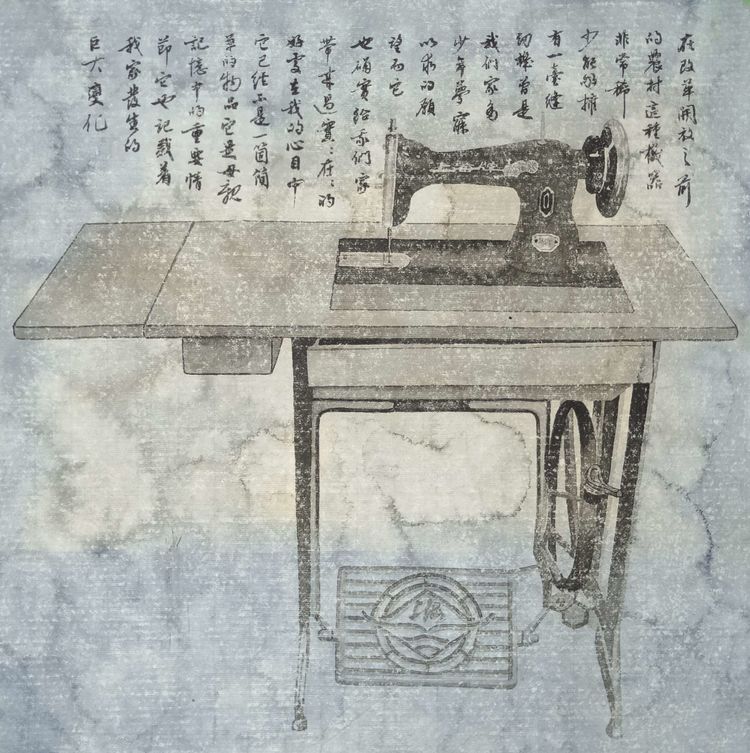 在改革開放之前
的農村這種機器
非常稀
少能够擁
有一臺縫
紉機曾是
我們家多
少年夢寐
以求的願
望而它
也確實給我們家
帶來過實〻在〻的
好處在我的心目中
它已經不是一箇簡
單的物品它是母親
記憶中的重要情
節它也記載着
我家發生的
巨大變化